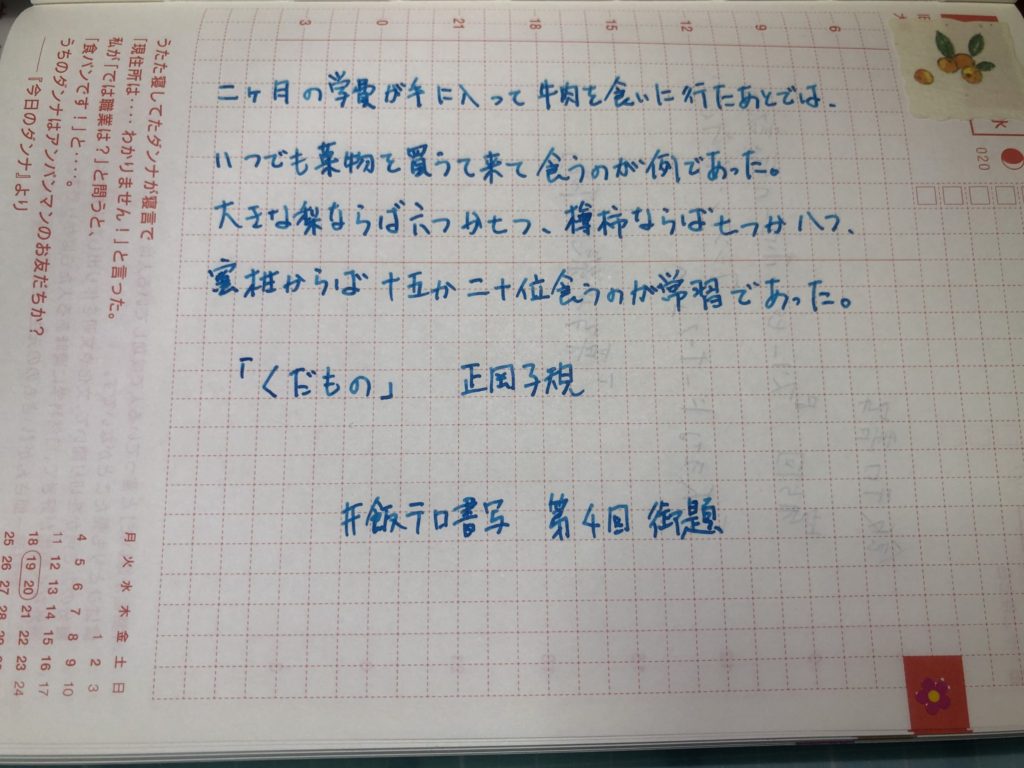 二ケ月の学費が手に入って牛肉を食いに行たあとでは、
いつでも菓物を買うて来て食うのが例であった。
大きな梨ならば六つか七つ、樽柿ならば七つか八つ、
蜜柑ならば十五か二十位食うのが常習であった。
「くだもの」 正岡子規
#飯テロ書写 第4回 御題
うたた寝してたダンナが寝言で
「現住所は‥‥わかりません！」と言った。
私が「では職業は？」と問うと、
「食パンです！」と‥‥。
うちのダンナはアンパンマンのお友だちか？
──『今日のダンナ』より
月 火 水 木 金 土 日
1 2 3
4 5 6 7 8 9 10
11 12 13 14 15 16 17
18 19 20 21 22 23 24
25 26 27 28
3
0
21
18
15
12
9
6
020
k